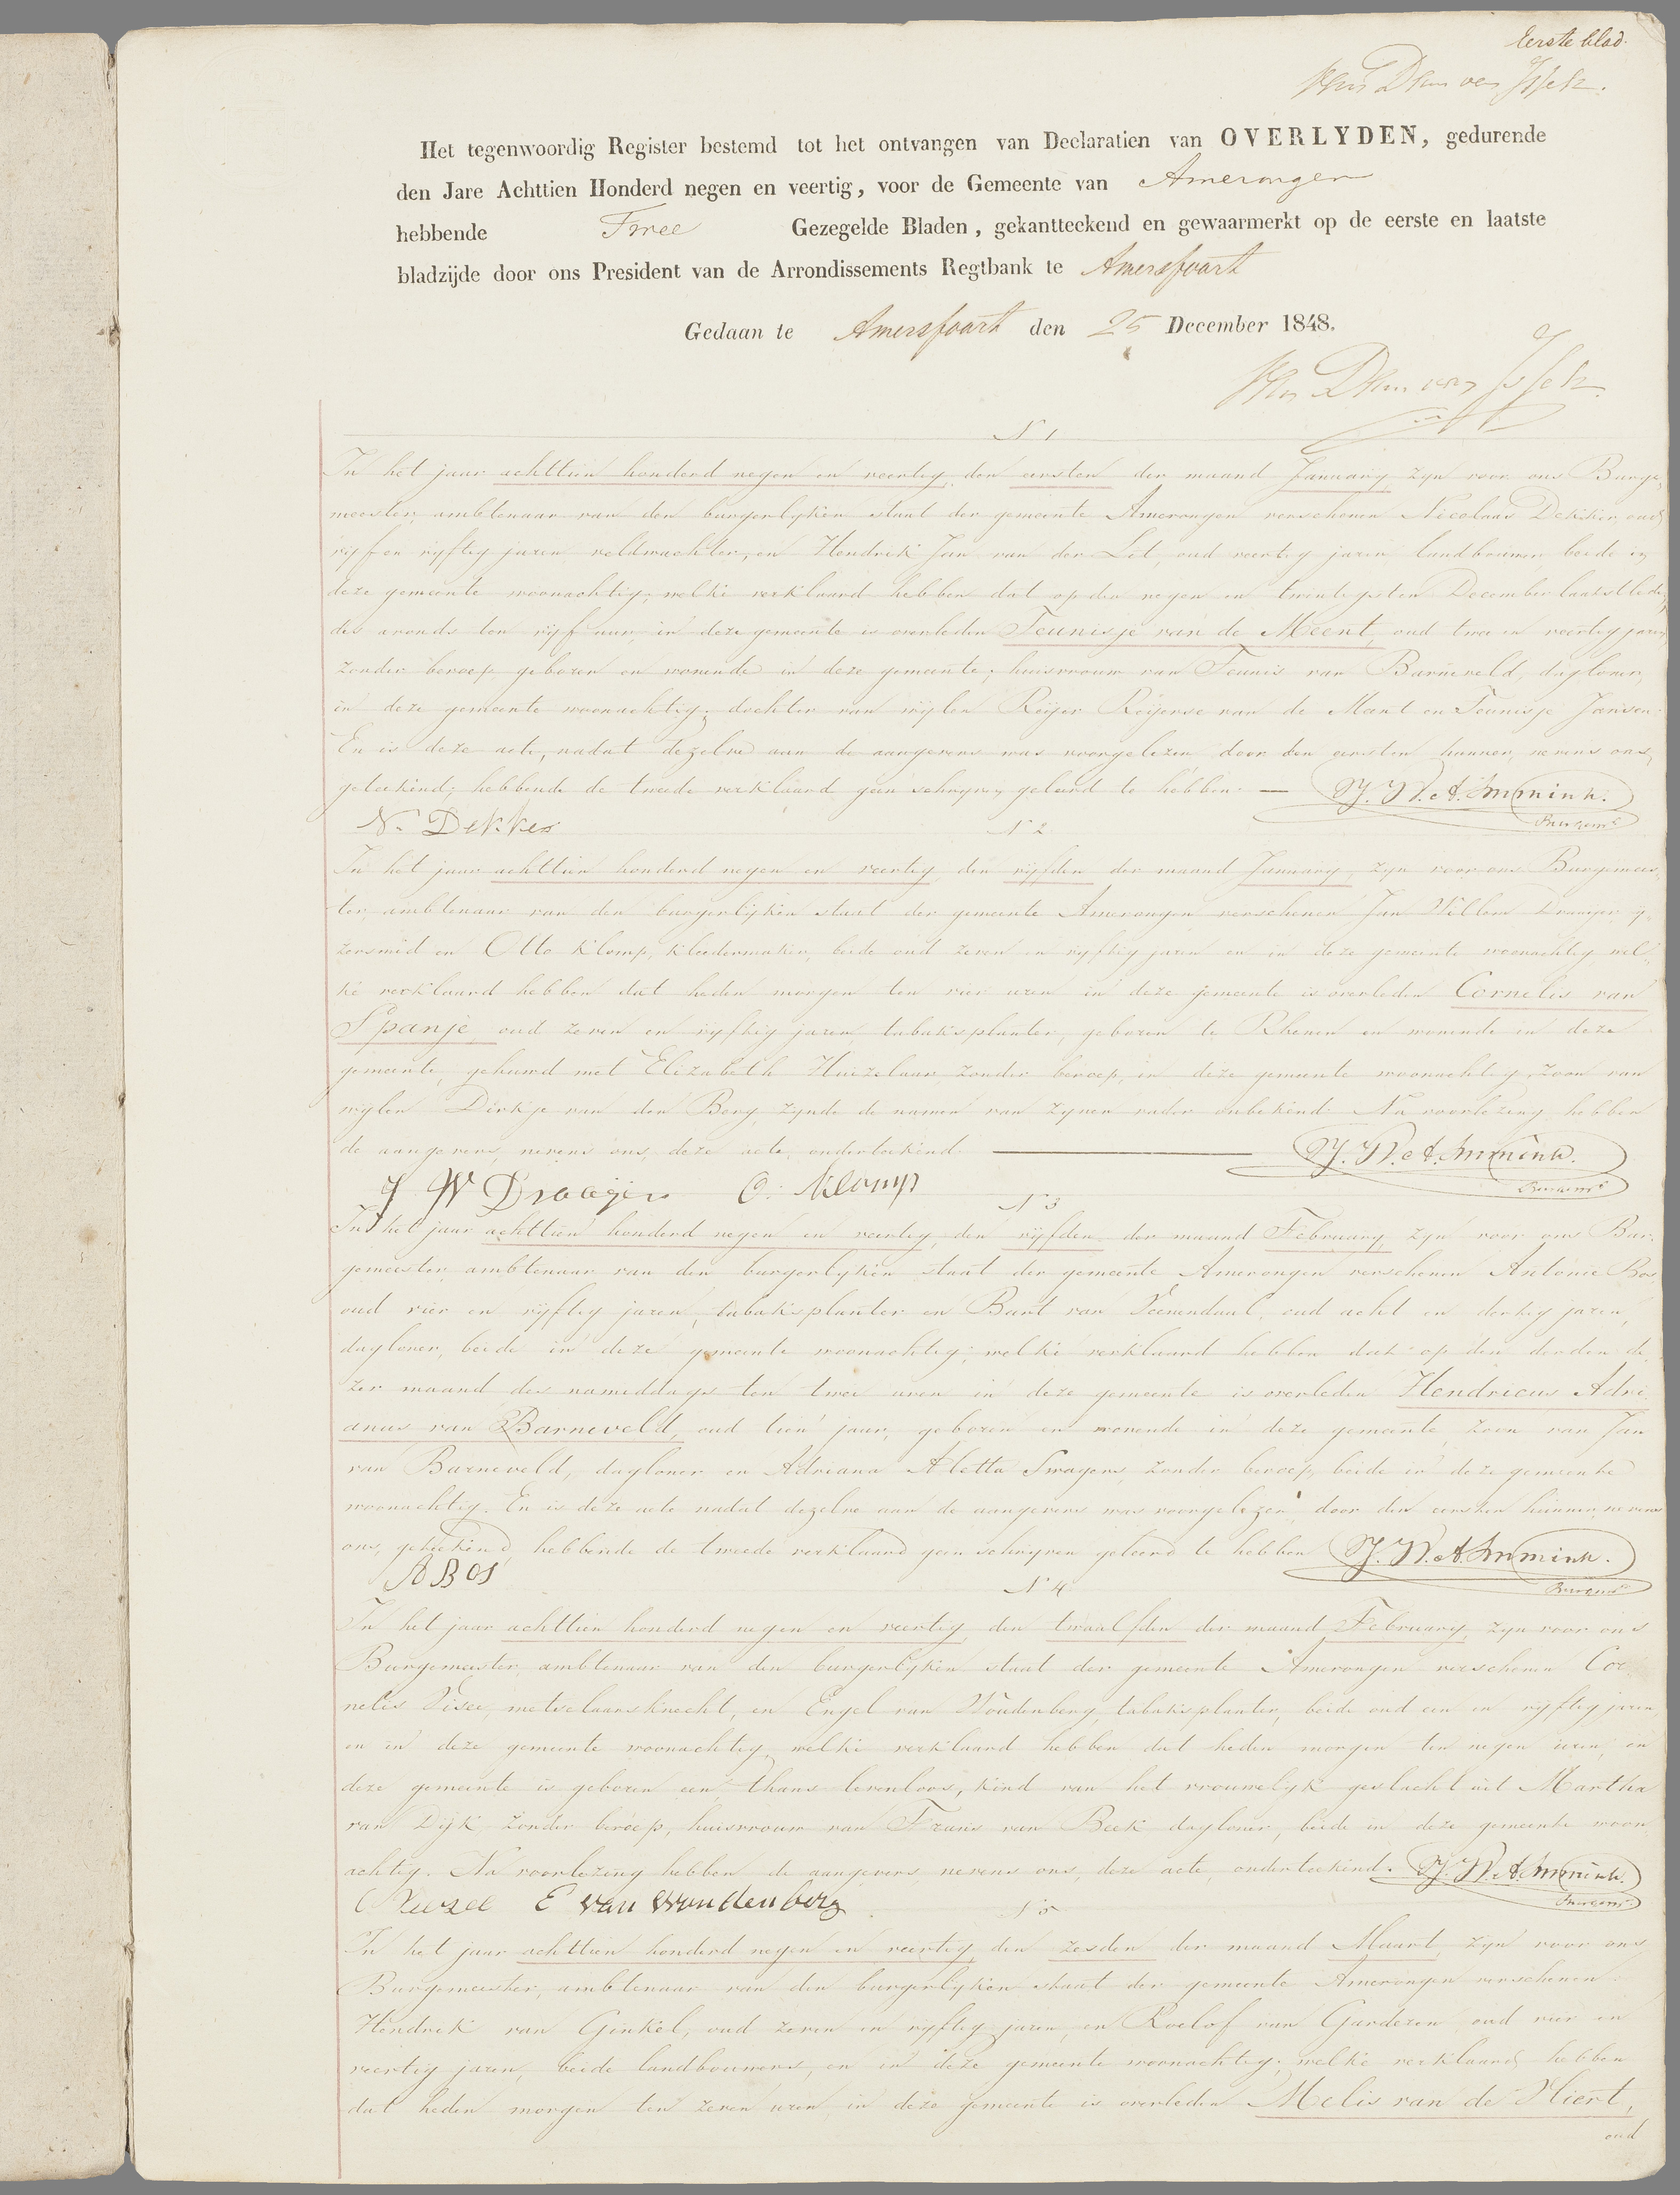 Eerste blad.
Het tegenwoordig Register bestemd tot het ontvangen van Declaratien van OVERLYDEN, gedurende
den Jare Achttien Honderd negen en veertig, voor de Gemeente van Amerongen
hebbende Twee Gezegelde Bladen, gekantteekend en gewaarmerkt op de eerste en laatste
bladzijde door ons President van de Arrondissements Regtbank te Amersfoort
Gedaan te Amersfoort den 25 December 1848.
N 1
In het jaar achttien honderd negen en veertig, den eersten der maand January, zyn voor ons Burge-
meester, ambtenaar van den burgerlyken staat der gemeente Amerongen verschenen Nicolaas Dekker, oud
vyf en vyftig jaren, veldwachter, en Hendrik Jan van der Lit, oud veertig jaren landbouwer, beide in
deze gemeente woonachtig; welke verklaard hebben dat op den negen en twintigsten December laatstleden
des avonds ten vyf uur, in deze gemeente is overleden Teunisje van de Meent, oud twee en veertig jaren
zonder beroep geboren en wonende in deze gemeente; huisvrouw van Teunis van Barneveld, dagloner,
in deze gemeente woonachtig; dochter van wylen Reijer Reijerse van de Mant en Teunisje Jansen.
En is deze acte, nadat dezelve aan de aangevers was voorgelezen door den eersten hunner, nevens ons,
geteekend; hebbende de tweede verklaard geen schryven geleerd te hebben. — J. W. A. Immink.
Burgemr
N. Dekker
N 2
In het jaar achttien honderd negen en veertig, den vyfden der maand January, zyn voor ons Burgemees-
ter, ambtenaar van den burgerlyken staat der gemeente Amerongen verschenen Jan Willem Draaijer, y-
zersmid en Otto Klomp, kleedermaker, beide oud zeven en vyftig jaren en in deze gemeente woonachtig, wel-
ke verklaard hebben dat heden morgen ten vier uren in deze gemeente is overleden Cornelis van
Spanje, oud zeven en vyftig jaren, tabaksplanter, geboren te Rhenen en wonende in deze
gemeente, gehuwd met Elizabeth Huizelaar, zonder beroep, in deze gemeente woonachtig, zoon van
wylen Dirkje van den Berg, zynde de namen van zynen vader onbekend. Na voorlezing hebben
de aangevers, nevens ons, deze acte, onderteekend. — J. W. A. Immink.
Burgemr
J W Draaijer O. Klomp
N 3
In het jaar achttien honderd negen en veertig, den vyfden der maand February, zyn voor ons Bur-
gemeester, ambtenaar van den burgerlyken staat der gemeente Amerongen verschenen Antonie Bos,
oud vier en vyftig jaren, tabaksplanter en Bart van Veenendaal, oud acht en dertig jaren,
dagloner, beide in deze gemeente woonachtig; welke verklaard hebben dat op den derden de-
zer maand des namiddags ten twee uren in deze gemeente is overleden Hendricus Adri-
anus van Barneveld, oud tien jaar, geboren en wonende in deze gemeente, zoon van Jan
van Barneveld, dagloner en Adriana Aletta Swagers, zonder beroep, beide in deze gemeente
woonachtig. En is deze acte nadat dezelve aan de aangevers was voorgelezen, door den eersten hunner, nevens
ons, geteekend, hebbende de tweede verklaard geen schryven geleerd te hebben J. W. A. Immink.
Burgemr
A BOS
N 4
In het jaar achttien honderd negen en veertig, den twaalfden der maand February, zyn voor ons
Burgemeester, ambtenaar van den burgerlyken staat der gemeente Amerongen verschenen Cor-
nelis Visee, metselaarsknecht, en Engel van Woudenberg, tabaksplanter, beide oud een en vyftig jaren
en in deze gemeente woonachtig, welke verklaard hebben dat heden morgen ten negen uren, in
deze gemeente is geboren een, thans levenloos, kind van het vrouwelyk geslacht uit Martha
van Dijk, zonder beroep, huisvrouw van Frans van Beek dagloner, beide in deze gemeente woon-
achtig. Na voorlezing hebben de aangevers, nevens ons, deze acte, onderteekend. J. W. A. Immink.
Burgemr
E van Woudenberg
N 5
In het jaar achttien honderd negen en veertig, den zesden der maand Maart, zyn voor ons
Burgemeester, ambtenaar van den burgerlyken staat der gemeente Amerongen verschenen:
Hendrik van Ginkel, oud zeven en vyftig jaren, en Roelof van Garderen oud vier en
veertig jaren, beide landbouwers, en in deze gemeente woonachtig; welke verklaard hebben
dat heden morgen ten zeven uren, in deze gemeente is overleden Melis van de Vliert,
oud